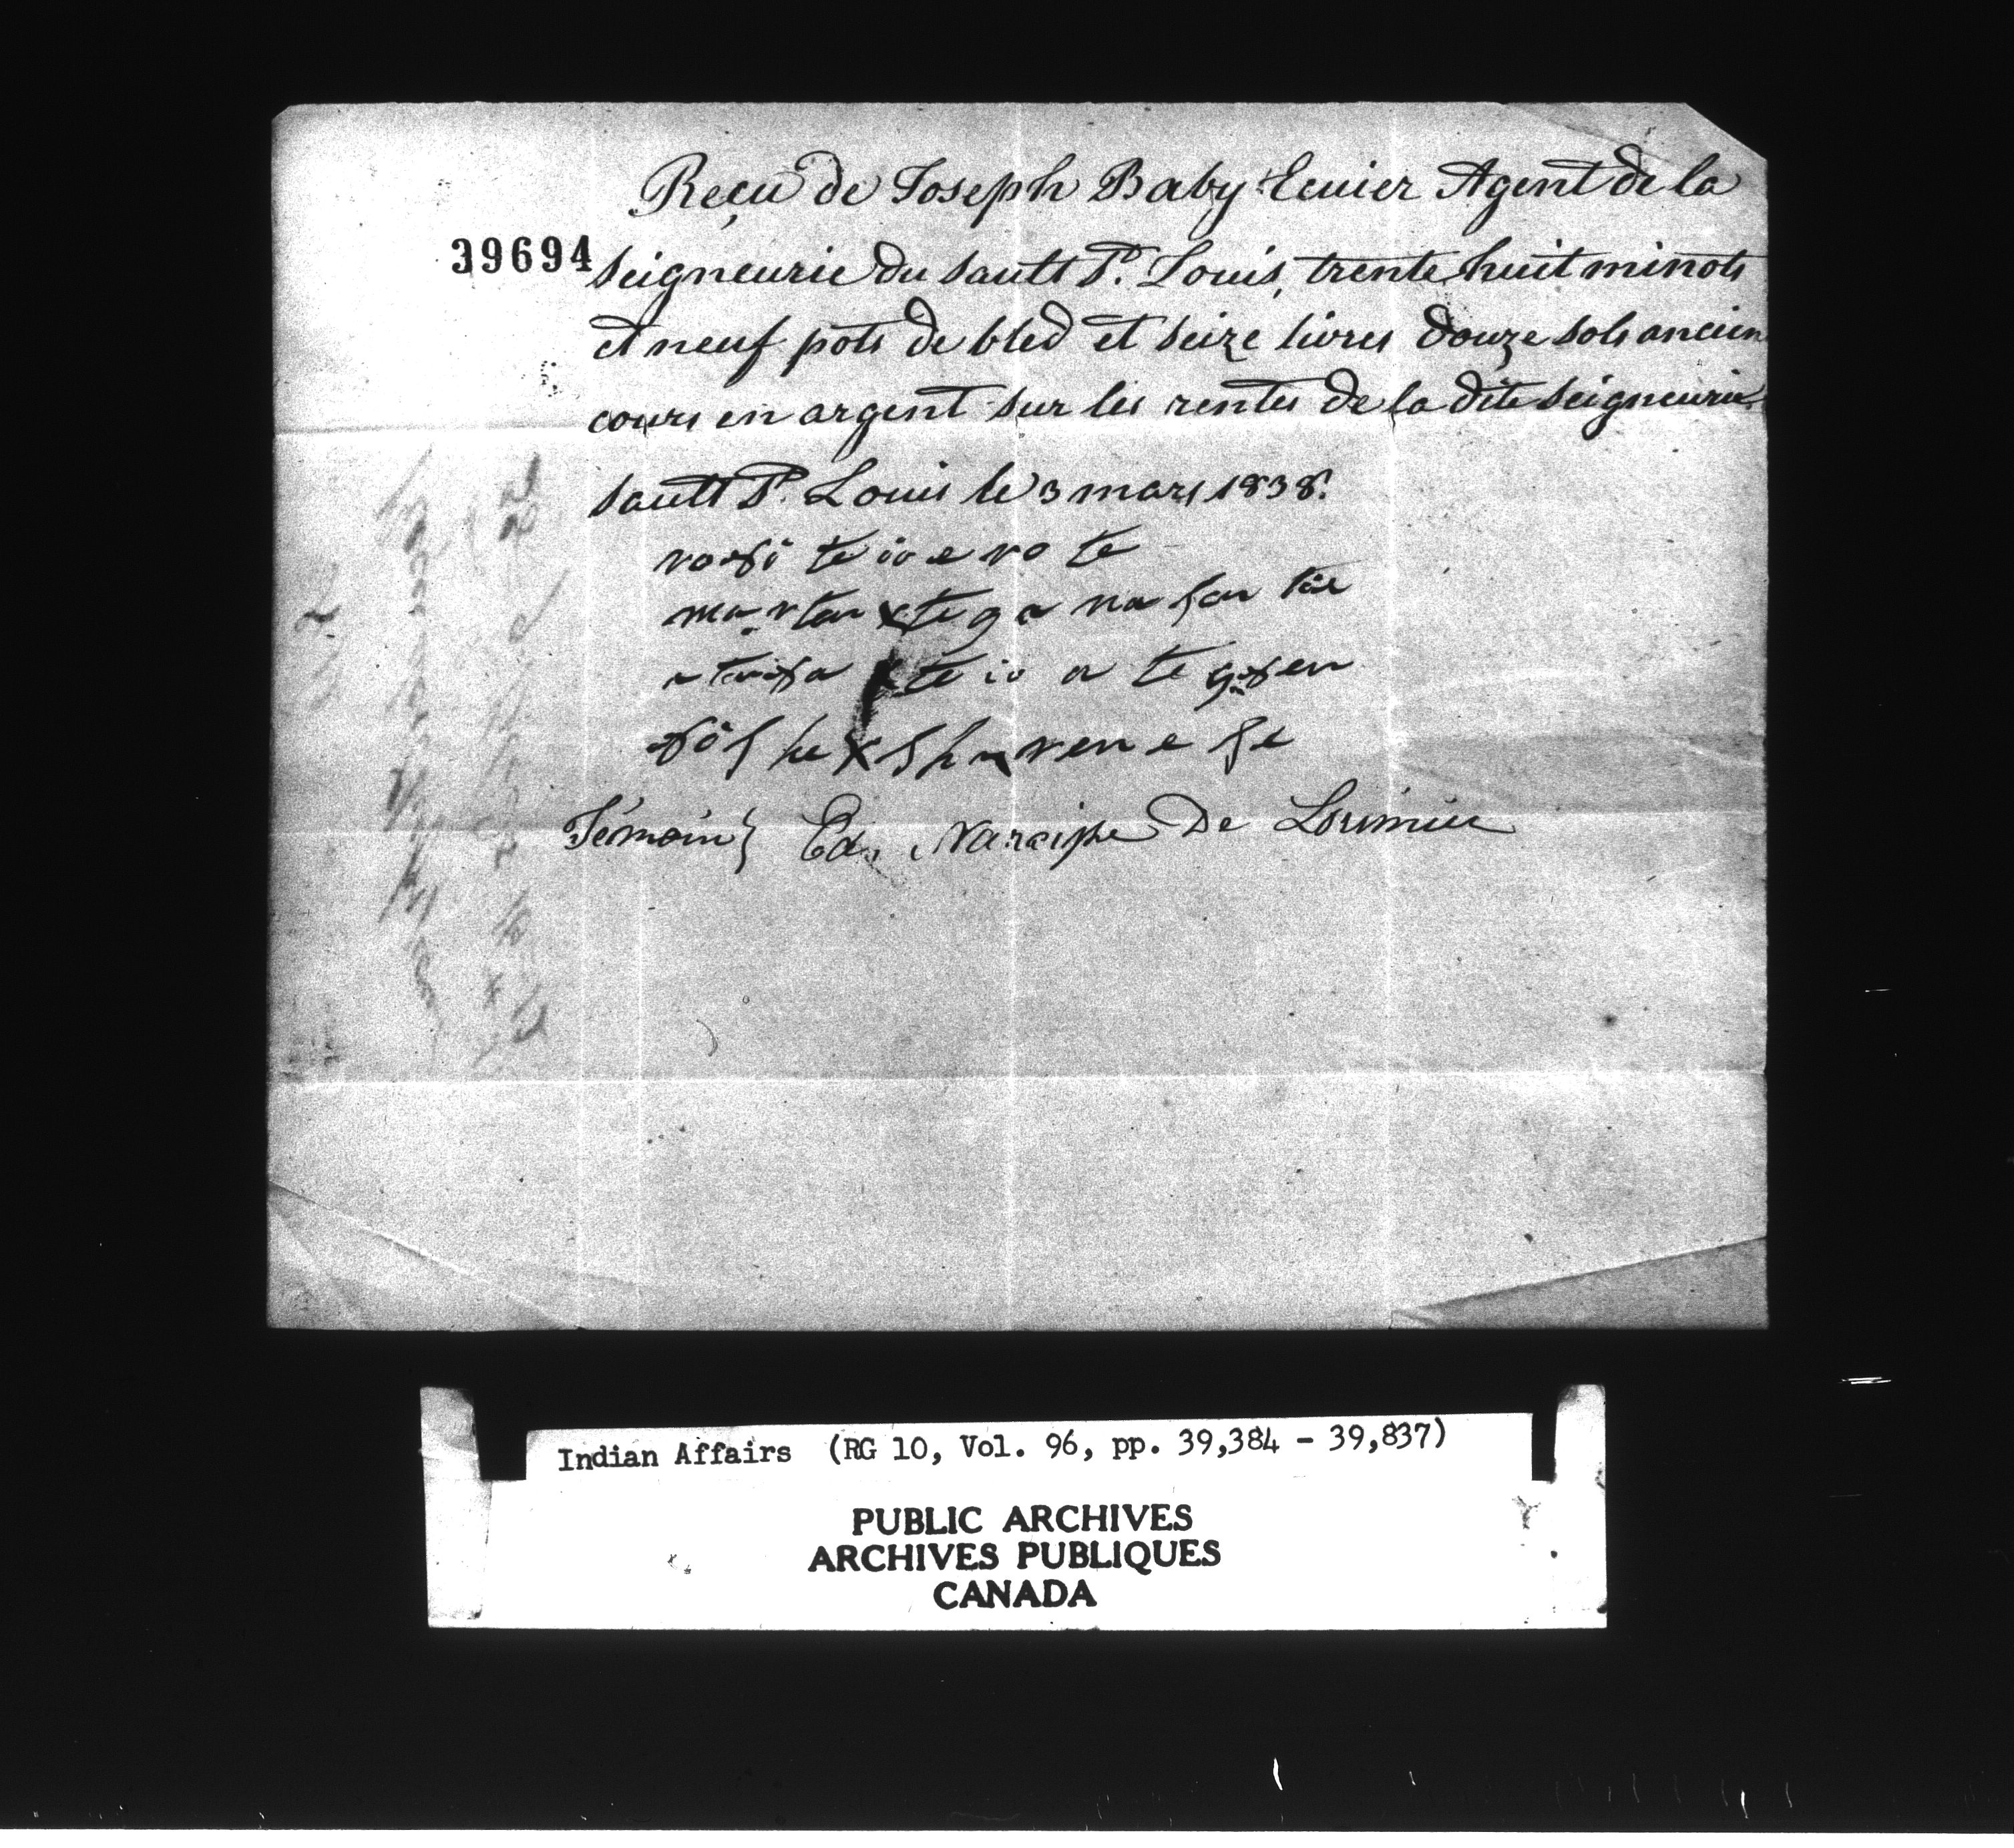 Reçu de Joseph Baby Ecuier Agent de la
39694
seigneurie du Sault St. Louis, trente huit minots
et neuf pots de bled et seize livres douze sols ancien
cours en argent sur les rentes de la dite seigneurie
Sault St. Louis le 3 mars 1838.
te io e ro te
x te ga na
x te io a te
x
Témoin } Ed. Narcisse De Lorimier
Indian Affairs (RG 10, Vol. 96, pp. 39,384 - 39,837)
PUBLIC ARCHIVES
ARCHIVES PUBLIQUES
CANADA